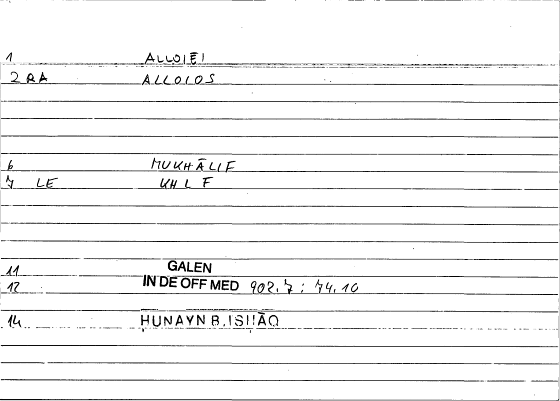 1 ALLOIEI
2 RA ALLOIOS
6 MUKHĀLIF
7 LE KHLF
11 GALEN
12 IN DE OFF MED 902.7 : 74.10
14 HUNAYN B. ISḤĀQ